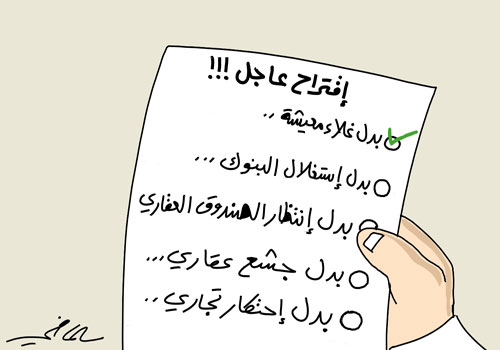 إفتراح عاجل !!!
بدل غلاء معيشة ..
بدل إستغلال البنوك ...
بدل إنتظار الصندوق العقاري
بدل جشع عقاري...
بدل إحتكار تجاري ..